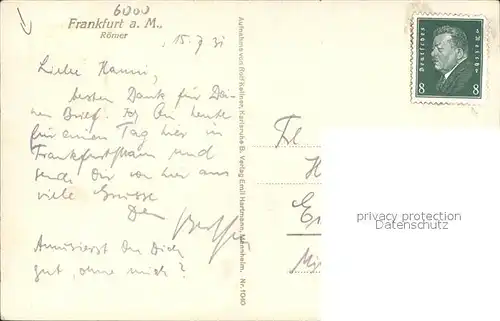 6000
Frankfurt a. M.,
Römer
15.7 31
Liebe Hanni,
besten Dank für Dei-
nen Brief. Ich bin heute
für einen Tag hier in
Frankfurt/Main und
sende Dir von hier aus
viele Grüsse
Dein
Amüsierst Du Dich
gut, ohne mich?
Aufnahme von Rolf Kellner, Karlsruhe B. Verlag Emil Hartmann, Mannheim. Nr. 1040
Deutsches Reich
8 8
Frl
H
Mi
privacy protection
Datenschutz